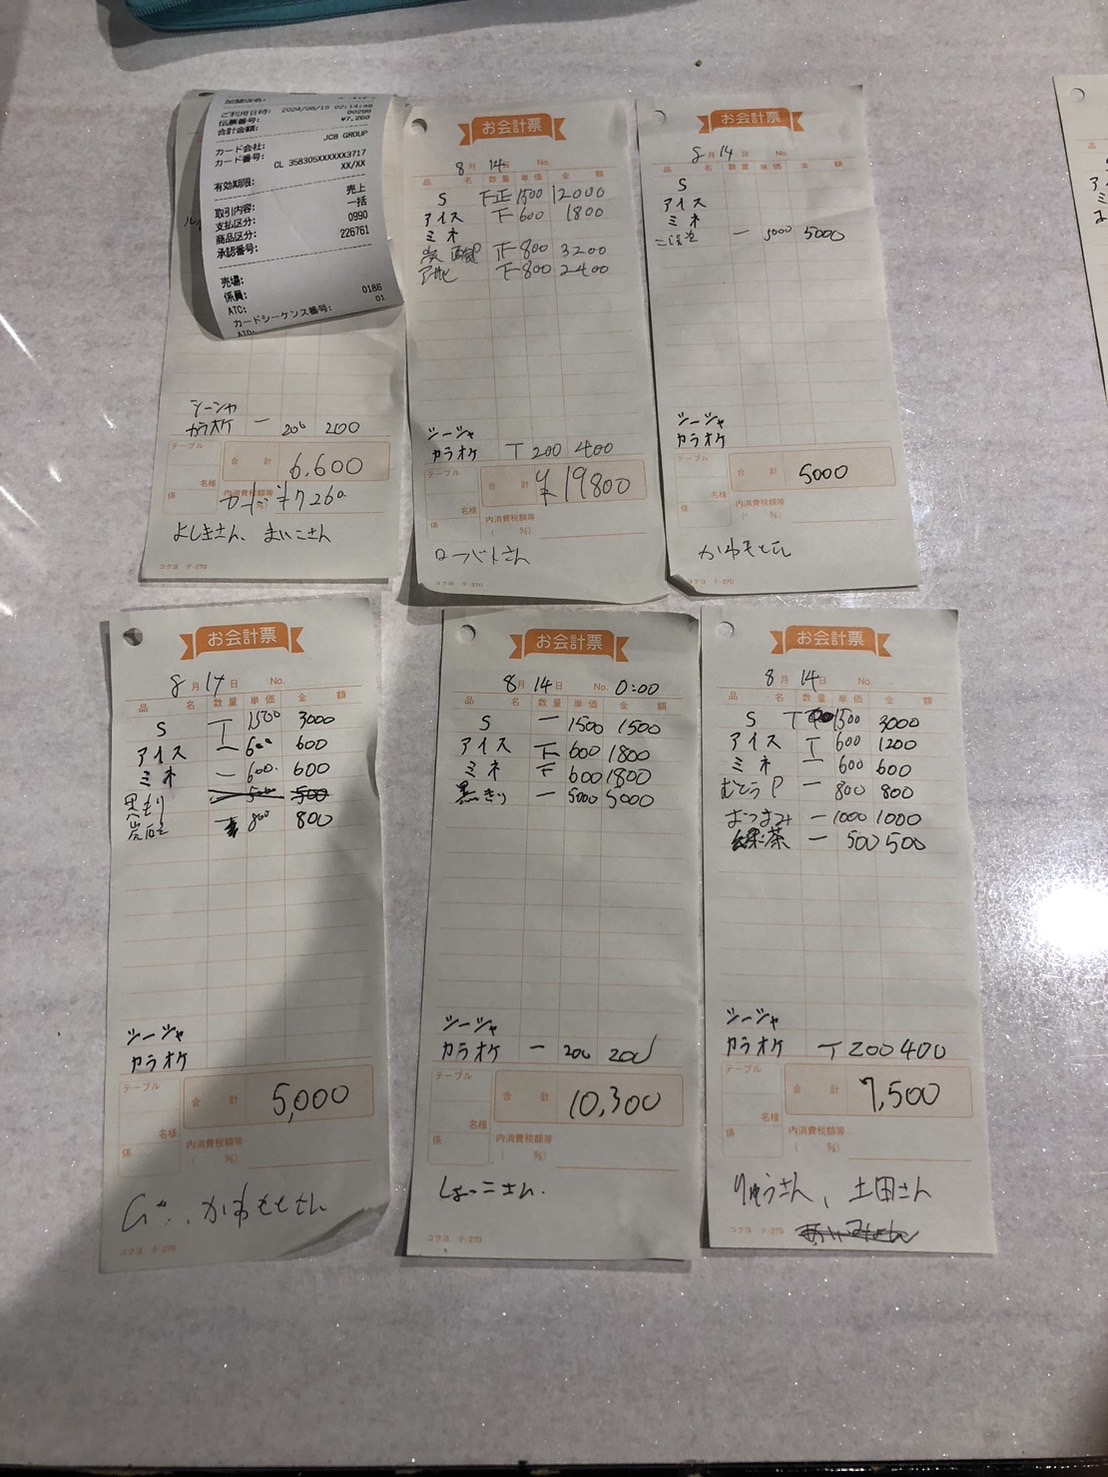 ご利用日時: 2024/08/15 02:14:48
伝票番号: 00299
合計金額: ¥7,260
カード会社: JCB GROUP
カード番号: CL 358305XXXXXX3717
有効期限: XX/XX
取引内容: 売上
支払区分: 一括
商品区分: 0990
承認番号: 226761
売場:
係員:
ATC: 0186
カードシーケンス番号: 01
シーシャ
カラオケ 一 200 200
テーブル
合計 6.600
名様
係
内消費税額等
カード ¥7260
よしきさん、まいこさん
コクヨ テ-270
お会計票
8月14日 No.
品名 数量 単価 金額
S 下正 1500 12000
アイス 下 600 1800
ミネ
正 800 3200
下 800 2400
シーシャ
カラオケ T 200 400
テーブル
合計 ¥19800
名様
係
内消費税額等
( %)
ローバトさん
コクヨ テ-270
お会計票
8月14日 No.
品名 数量 単価 金額
S
アイス
ミネ
一 5000 5000
シーシャ
カラオケ
テーブル
合計 5000
名様
係
内消費税額等
( %)
コクヨ テ-270
お会計票
8月14日 No.
品名 数量 単価 金額
S T 1500 3000
アイス 一 600 600
ミネ 一 600 600
一 500 500
800 800
シーシャ
カラオケ
テーブル
合計 5,000
名様
係
内消費税額等
( %)
かわもとさん
コクヨ テ-270
お会計票
8月14日 No. 0:00
品名 数量 単価 金額
S 一 1500 1500
アイス 下 600 1800
ミネ 下 600 1800
黒きり 一 5000 5000
シーシャ
カラオケ 一 200 200
テーブル
合計 10,300
名様
係
内消費税額等
( %)
しょっこさん.
コクヨ テ-270
お会計票
8月14日 No.
品名 数量 単価 金額
S T 1500 3000
アイス T 600 1200
ミネ 一 600 600
むとうP 一 800 800
おつまみ 一 1000 1000
緑茶 一 500 500
シーシャ
カラオケ T 200 400
テーブル
合計 7,500
名様
係
内消費税額等
( %)
りゅうさん、土田さん
コクヨ テ-270